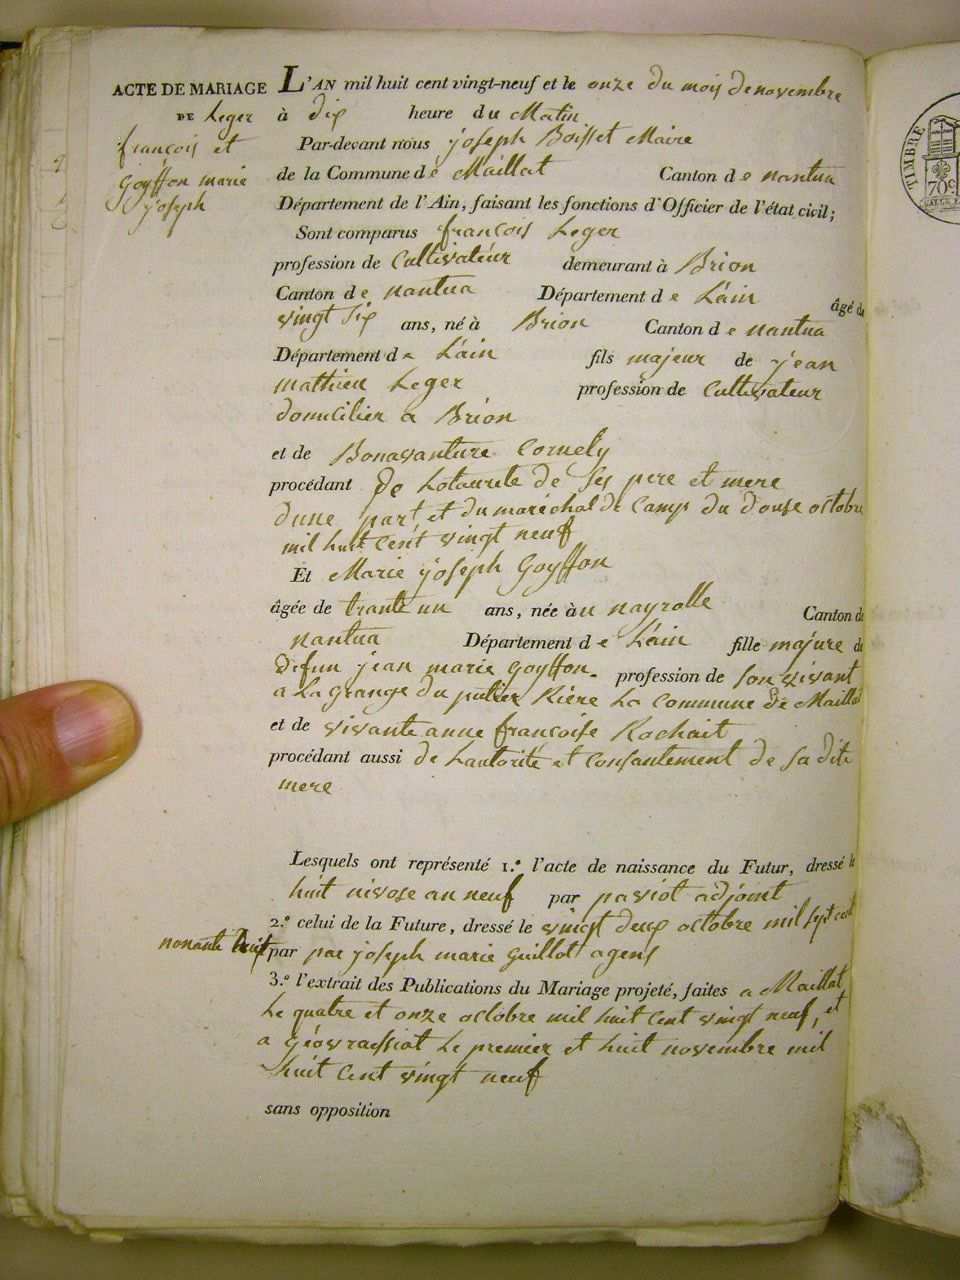 ACTE DE MARIAGE
DE Leger
françois et
Goyffon marie
joseph
L'AN mil huit cent vingt-neuf et le onze du mois de novembre
à dix heure du Matin
Par-devant nous joseph Boisset Maire
de la Commune dé Maillat Canton de nantua
Département de l'Ain, faisant les fonctions d'Officier de l'état civil;
Sont comparus françois Leger
profession de Cultivatéur demeurant à Brion
Canton de nantua Département de L'ain âgé de
vingt six ans, né à Brion Canton de nantua
Département de L'ain fils majeur de jean
mathieu Leger profession de Cultivateur
domicilier a Brion
et de Bonavanture Cornely
procédant de Lotaurite de ses pere et mere
dune part, et du maréchal de Camp du douse octobre
mil huit cent vingt neuf
Et Marie joséph Goyffon
âgée de trante un ans, née àu nayrolle Canton de
nantua Département de L'ain fille majure de
Défun jean marie Goyffon. profession de son vivant
a La Grange du Rière La Commune de Maillat
et de vivante anne françoise Rochait
procédant aussi de Lautorité et Consantement de sa dite
mere
Lesquels ont représenté 1.º l'acte de naissance du Futur, dressé le
huit nivose an neuf par paviot adjoint
2.º celui de la Future, dressé le vingt deux octobre mil sept cent
nonante huit par par joseph marie Guillot agens
3.º l'extrait des Publications du Mariage projeté, faites a Maillat
Le quatre et onze octobre mil huit Cent vingt neuf, et
a Géovraissiat Le premier et huit novembre mil
huit Cent vingt neuf
sans opposition
TIMBRE
70c